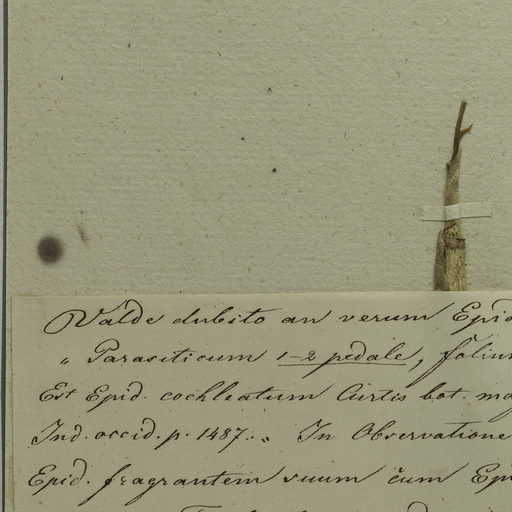 Valde dubito an verum Epid
„ Parasiticum 1-2 pedale, folium
Est Epid. cochleatum Curtis bot. mag
Ind. occid. p. 1487. „ In Observatione
Epid. fragrantem suum cum Epi